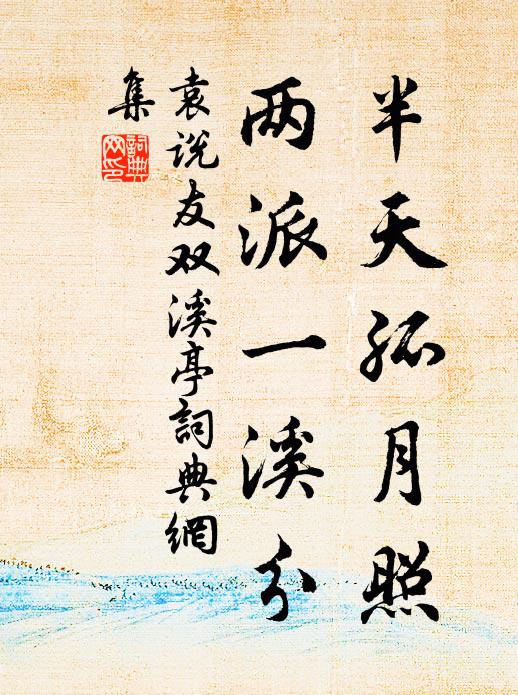 半天孤月照
两派一溪分
袁说友双溪亭詞典網
集
詞典
网印